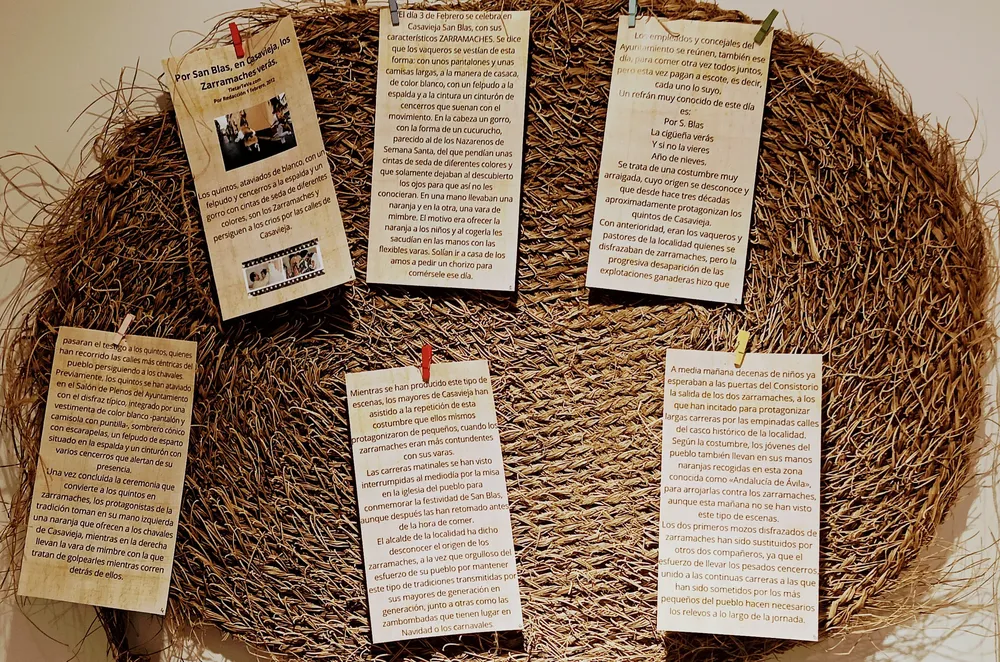 Por San Blas, en Casavieja, los
Zarramaches verás.
TietarTeVe.com
Por Redacción 1 Febrero, 2012
Los quintos, ataviados de blanco, con un
felpudo y cencerros a la espalda y un
gorro con cintas de seda de diferentes
colores, son los Zarramaches y
persiguen a los crios por las calles de
Casavieja.
El día 3 de Febrero se celebra en
Casavieja San Blas, con sus
característicos ZARRAMACHES. Se dice
que los vaqueros se vestían de esta
forma: con unos pantalones y unas
camisas largas, a la manera de casaca,
de color blanco, con un felpudo a la
espalda y a la cintura un cinturón de
cencerros que suenan con el
movimiento. En la cabeza un gorro,
con la forma de un cucurucho,
parecido al de los Nazarenos de
Semana Santa, del que pendían unas
cintas de seda de diferentes colores y
que solamente dejaban al descubierto
los ojos para que así no les
conocieran. En una mano llevaban una
naranja y en la otra, una vara de
mimbre. El motivo era ofrecer la
naranja a los niños y al cogerla les
sacudían en las manos con las
flexibles varas. Solían ir a casa de los
amos a pedir un chorizo para
comérsele ese día.
Los empleados y concejales del
Ayuntamiento se reúnen, también ese
día, para comer otra vez todos juntos,
pero esta vez pagan a escote, es decir,
cada uno lo suyo.
Un refrán muy conocido de este día
es:
Por S. Blas
La cigüeña verás
Y si no la vieres
Año de nieves.
Se trata de una costumbre muy
arraigada, cuyo origen se desconoce y
que desde hace tres décadas
aproximadamente protagonizan los
quintos de Casavieja.
Con anterioridad, eran los vaqueros y
pastores de la localidad quienes se
disfrazaban de zarramaches, pero la
progresiva desaparición de las
explotaciones ganaderas hizo que
pasaran el testigo a los quintos, quienes
han recorrido las calles más céntricas del
pueblo persiguiendo a los chavales.
Previamente, los quintos se han ataviado
en el Salón de Plenos del Ayuntamiento
con el disfraz típico, integrado por una
vestimenta de color blanco -pantalón y
camisola con puntilla-, sombrero cónico
con escarapelas, un felpudo de esparto
situado en la espalda y un cinturón con
varios cencerros que alertan de su
presencia.
Una vez concluída la ceremonia que
convierte a los quintos en
zarramaches, los protagonistas de la
tradición toman en su mano izquierda
una naranja que ofrecen a los chavales
de Casavieja, mientras en la derecha
llevan la vara de mimbre con la que
tratan de golpearles mientras corren
detrás de ellos.
Mientras se han producido este tipo de
escenas, los mayores de Casavieja han
asistido a la repetición de esta
costumbre que ellos mismos
protagonizaron de pequeños, cuando los
zarramaches eran más contundentes
con sus varas.
Las carreras matinales se han visto
interrumpidas al mediodía por la misa
en la iglesia del pueblo para
conmemorar la festividad de San Blas,
aunque después las han retomado antes
de la hora de comer.
El alcalde de la localidad ha dicho
desconocer el origen de los
zarramaches, a la vez que orgulloso del
esfuerzo de su pueblo por mantener
este tipo de tradiciones transmitidas por
sus mayores de generación en
generación, junto a otras como las
zambombadas que tienen lugar en
Navidad o los carnavales.
A media mañana decenas de niños ya
esperaban a las puertas del Consistorio
la salida de los dos zarramaches, a los
que han incitado para protagonizar
largas carreras por las empinadas calles
del casco histórico de la localidad.
Según la costumbre, los jóvenes del
pueblo también llevan en sus manos
naranjas recogidas en esta zona
conocida como «Andalucía de Ávila»,
para arrojarlas contra los zarramaches,
aunque esta mañana no se han visto
este tipo de escenas.
Los dos primeros mozos disfrazados de
zarramaches han sido sustituidos por
otros dos compañeros, ya que el
esfuerzo de llevar los pesados cencerros
unido a las continuas carreras a las que
han sido sometidos por los más
pequeños del pueblo hacen necesarios
los relevos a lo largo de la jornada.